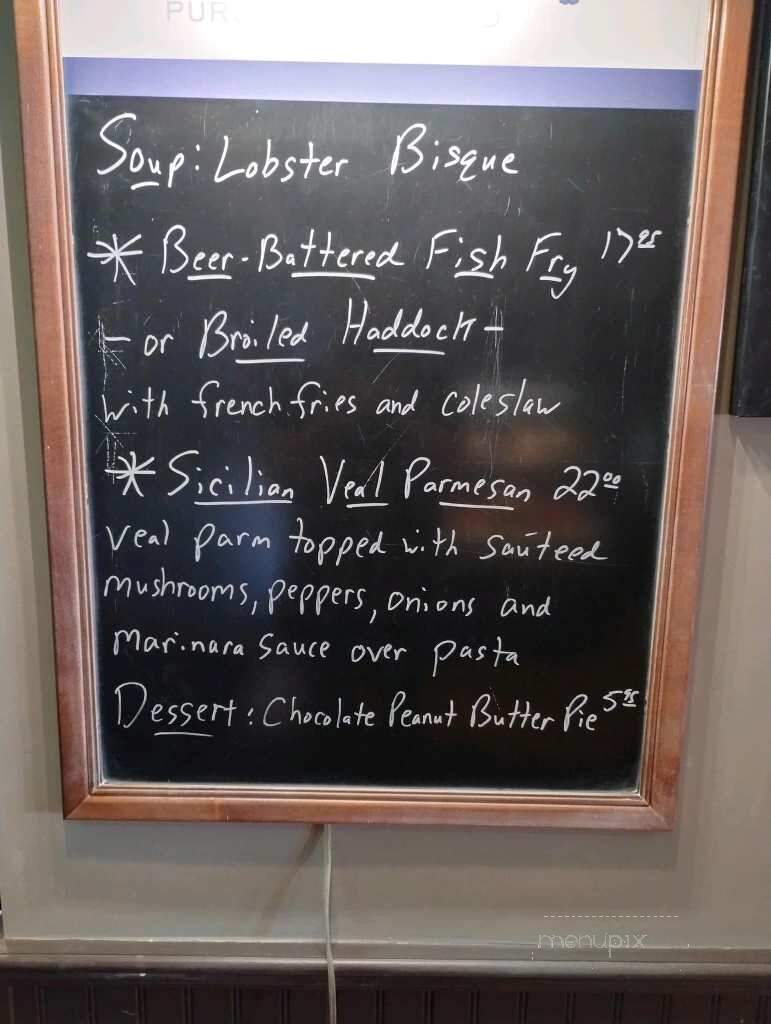 PUR
Soup: Lobster Bisque
* Beer-Battered Fish Fry 17.95
- or Broiled Haddock -
with french fries and coleslaw
* Sicilian Veal Parmesan 22.00
veal parm topped with sauteed
mushrooms, peppers, onions and
marinara sauce over pasta
Dessert: Chocolate Peanut Butter Pie 5.95
menupix